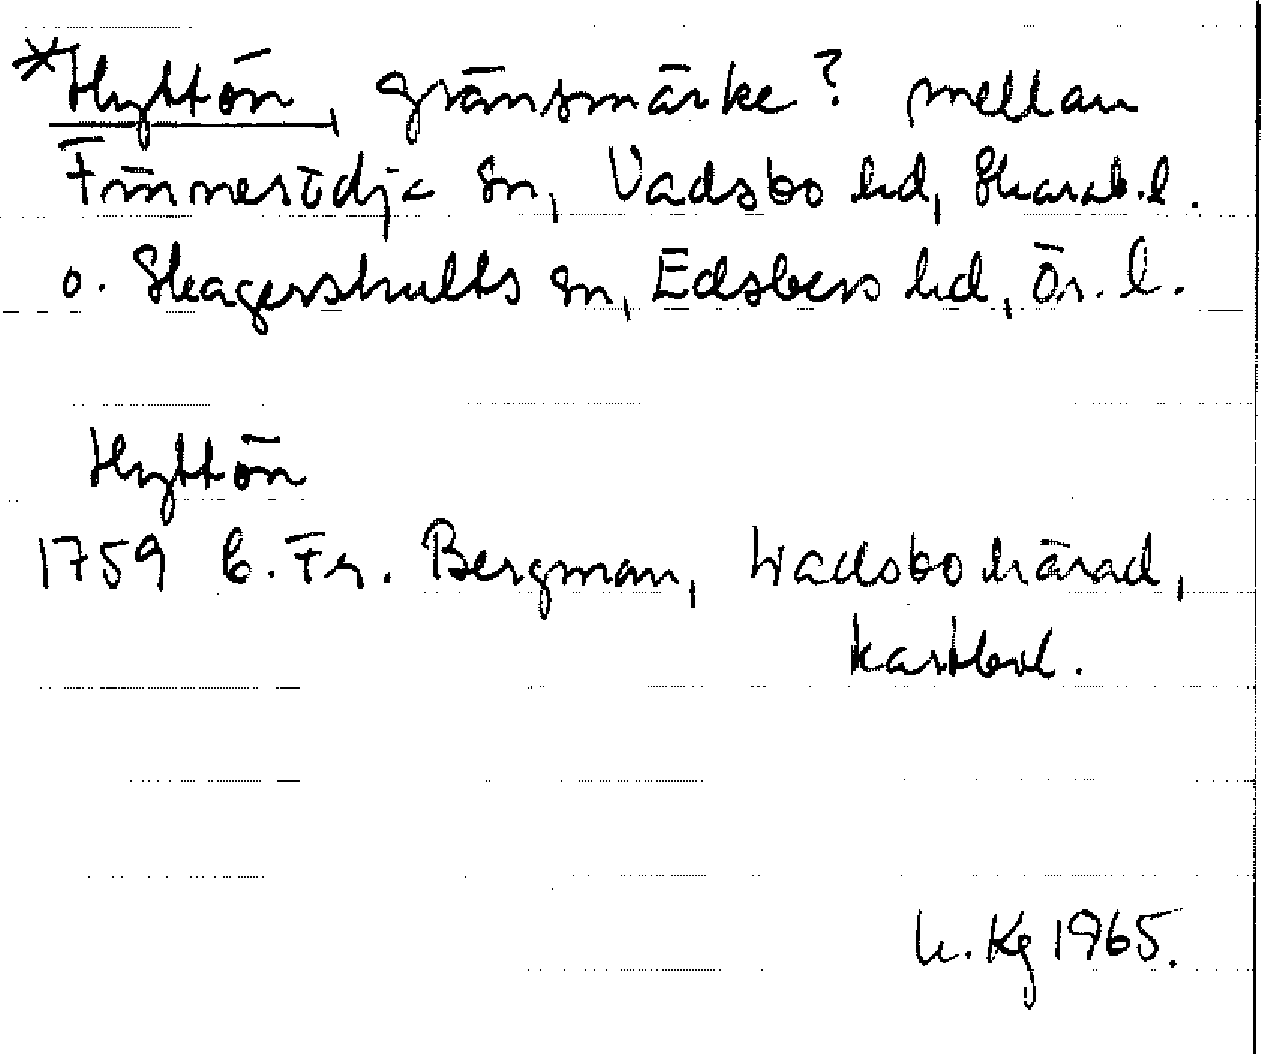 *Hyttön, gränsmärke? mellan
Finnerödja sn, Vadsbo hd, Skarab.l.
o. Skagershults sn, Edsbergs hd, Ör. l.
Hyttön
1759 C. Fr. Bergman, Wadsbo härad,
kartbok.
L. Kg 1965.